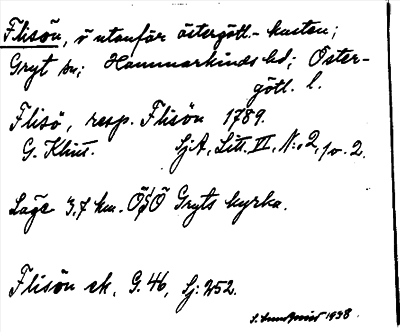 Flisön, ö utanför östergötl.-kusten;
Gryt sn; Hammarkinds hd; Öster-
götl. l.
Flisö, resp. Flisön 1789.
G. Klint. SjA, Litt. VI, N:o 2, fo. 2.
Läge 3,7 km. ÖSÖ Gryts kyrka.
Flisön ek. G. 46, Sj: 252.
S. Lundqvist 1938.